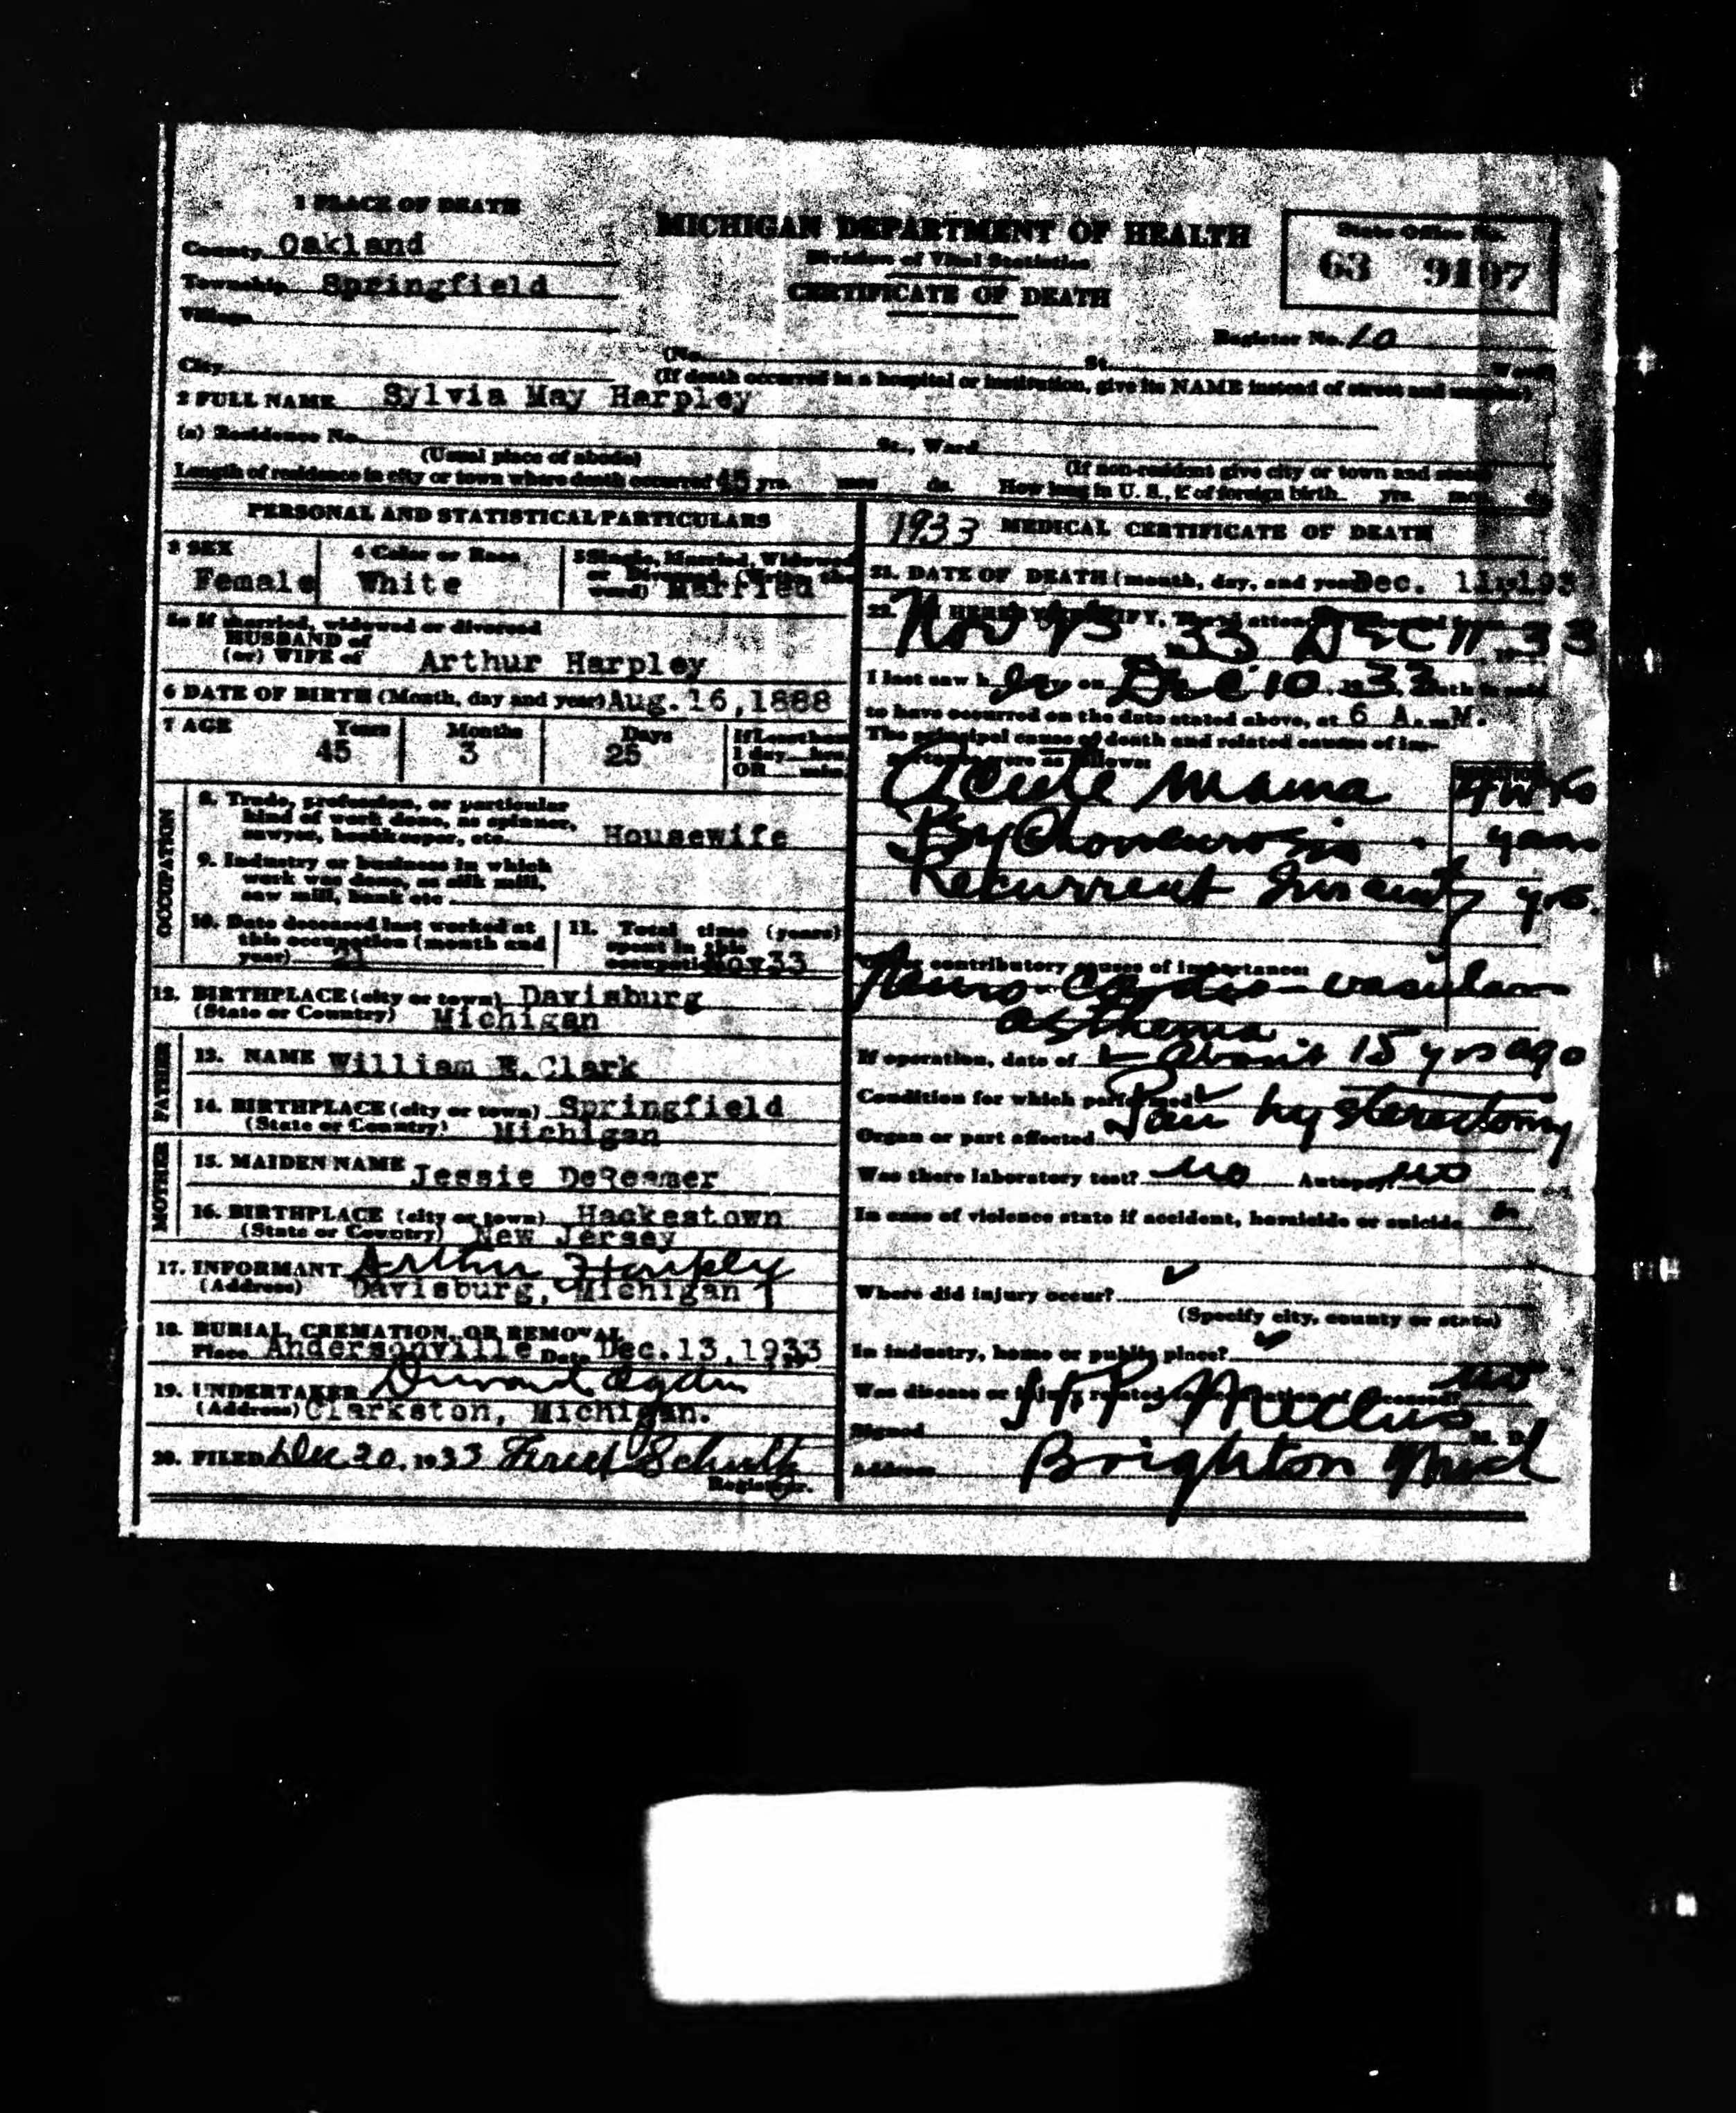 1 PLACE OF DEATH
County Oakland
Township Springfield
Village
City
MICHIGAN DEPARTMENT OF HEALTH
Division of Vital Statistics
CERTIFICATE OF DEATH
State Office No.
63 9107
Register No. 10
(No. St. Ward)
(If death occurred in a hospital or institution, give its NAME instead of street and number)
2 FULL NAME Sylvia May Harpley
(a) Residence No. St., Ward
(Usual place of abode) (If non-resident give city or town and state)
Length of residence in city or town where death occurred 45 yrs. mos. ds. How long in U. S., if of foreign birth. yrs. mos. ds.
PERSONAL AND STATISTICAL PARTICULARS
3 SEX Female
4 Color or Race White
5 Single, Married, Widowed or Divorced (Write the word) Married
5a If married, widowed or divorced
HUSBAND of
(or) WIFE of Arthur Harpley
6 DATE OF BIRTH (Month, day and year) Aug. 16, 1888
7 AGE Years 45 Months 3 Days 25 If Less than 1 day hrs. OR min.
OCCUPATION
8. Trade, profession, or particular
kind of work done, as spinner,
sawyer, bookkeeper, etc. Housewife
9. Industry or business in which
work was done, as silk mill,
saw mill, bank etc
10. Date deceased last worked at
this occupation (month and
year) 21
11. Total time (years)
spent in this
occupation Nov 33
12. BIRTHPLACE (city or town) Davisburg
(State or Country) Michigan
FATHER
13. NAME William E. Clark
14. BIRTHPLACE (city or town) Springfield
(State or Country) Michigan
MOTHER
15. MAIDEN NAME Jessie DeReamer
16. BIRTHPLACE (city or town) Hackestown
(State or Country) New Jersey
17. INFORMANT Arthur Harpley
(Address) Davisburg, Michigan
18. BURIAL, CREMATION, OR REMOVAL
Place Andersonville Date Dec. 13, 1933
19. UNDERTAKER Ogden
(Address) Clarkston, Michigan.
20. FILED Dec 20, 1933 Schultz
Registrar.
1933 MEDICAL CERTIFICATE OF DEATH
21. DATE OF DEATH (month, day, and year) Dec. 11, 193
22. I HEREBY CERTIFY, That I attended deceased from
Nov 33 DEC 11 33
I last saw h alive on Dec 10 1933 death is said
to have occurred on the date stated above, at 6 A. M.
The principal cause of death and related causes of im-
portance were as follows:
Acute mania 4 wks
Psychoneurosis years
Recurrent Insanity yrs.
Other contributory causes of importance:
Neuro-Cardio-vascular
asthenia
If operation, date of about 15 yrs ago
Condition for which performed
Organ or part affected Pan hysterectomy
Was there laboratory test? no Autopsy? no
In case of violence state if accident, homicide or suicide
Where did injury occur? ✓
(Specify city, county or state)
In industry, home or public place? ✓
Was disease or injury related to occupation of deceased? no
Signed M. D.
Address Brighton Mich